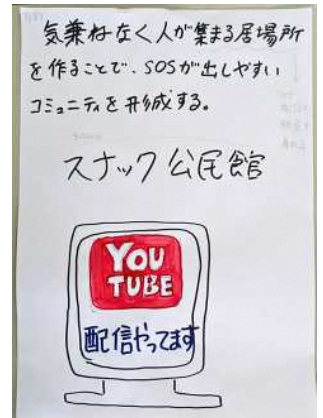 気兼ねなく人が集まる居場所
を作ることで、SOSが出しやすい
コミュニティを形成する。
スナック公民館
YOU
TUBE
配信やってます